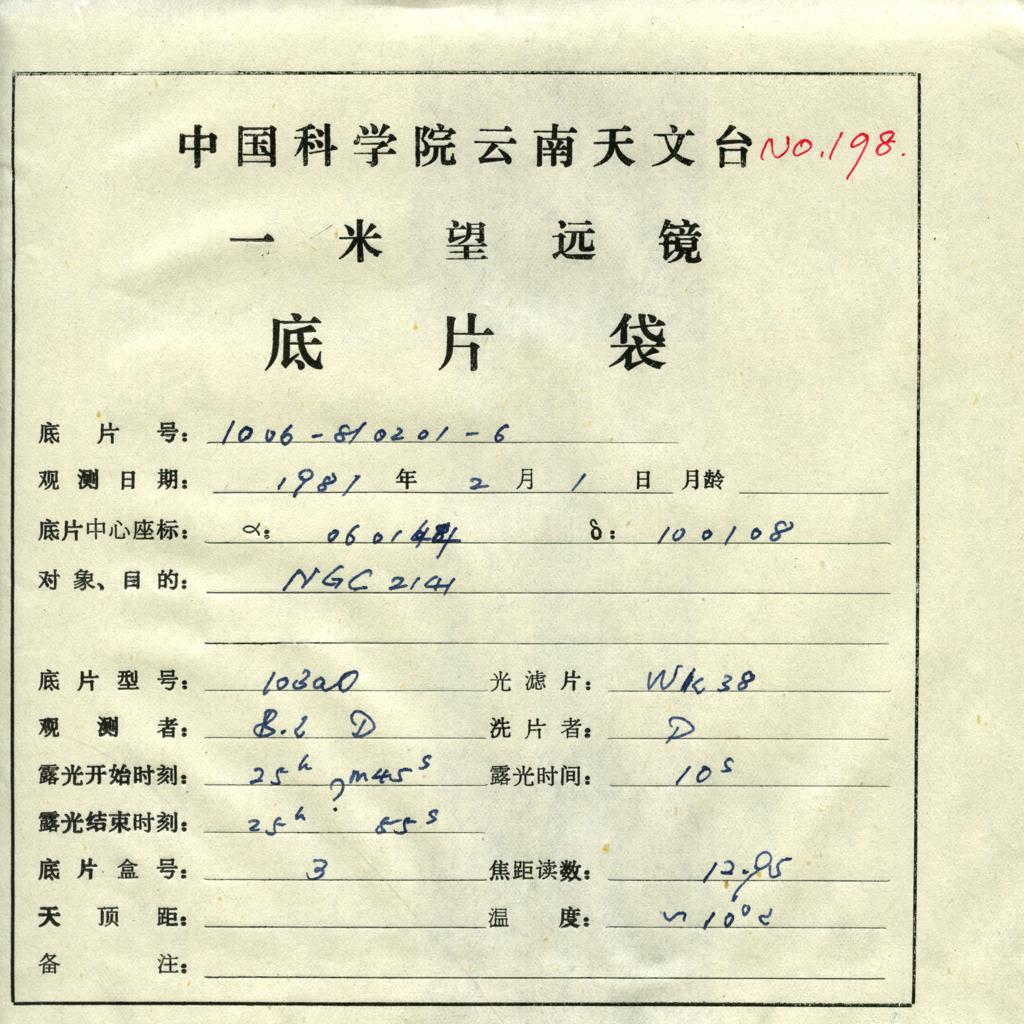 中国科学院云南天文台 NO.198.
一米望远镜
底片袋
底片号: 1006-810201-6
观测日期: 1981年2月1日 月龄
底片中心座标: α: 0601 δ: 100108
对象、目的: NGC 2141
底片型号: 103aO 光滤片: WK 38
观测者: D 洗片者: D
露光开始时刻: 25h ? m45s 露光时间: 10s
露光结束时刻: 25h 55s
底片盒号: 3 焦距读数: 12.95
天顶距: 温度: ~10°c
备注: